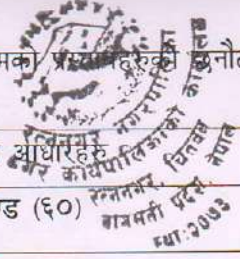 मको प्रस्तावहरुको छनौट
आधारहरु
ड (६०)
रत्ननगर नगरपालिका
नगर कार्यपालिकाको कार्यालय
रत्ननगर, चितवन
बागमती प्रदेश, नेपाल
स्था: २०७३